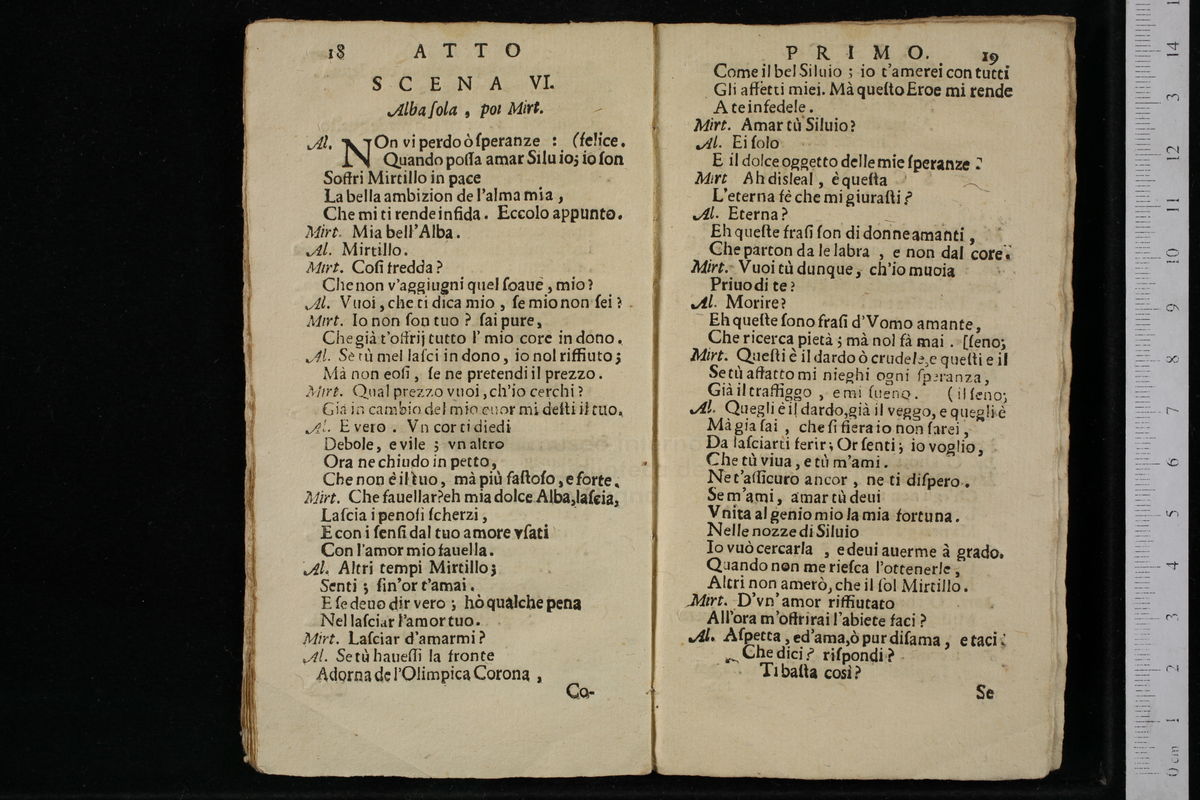 18 ATTO
SCENA VI.
Alba ſola, poi Mirt.
Al. NOn vi perdo ò ſperanze : (felice.
Quando poſſa amar Siluio; io ſon
Soffri Mirtillo in pace
La bella ambizion de l'alma mia,
Che mi ti rende infida. Eccolo appunto.
Mirt. Mia bell'Alba.
Al. Mirtillo.
Mirt. Coſi fredda?
Che non v'aggiugni quel ſoaue, mio?
Al. Vuoi, che ti dica mio, ſe mio non ſei?
Mirt. Io non ſon tuo? ſai pure,
Che già t'offrij tutto l' mio core in dono.
Al. Se tù mel laſci in dono, io nol riffiuto;
Mà non coſi, ſe ne pretendi il prezzo.
Mirt. Qual prezzo vuoi, ch'io cerchi?
Gia in cambio del mio cuor mi deſti il tuo.
Al. E vero. Vn cor ti diedi
Debole, e vile; vn altro
Ora ne chiudo in petto,
Che non è il tuo, mà più faſtoſo, e forte.
Mirt. Che fauellar? eh mia dolce Alba, laſcia,
Laſcia i penoſi ſcherzi,
E con i ſenſi dal tuo amore vſati
Con l'amor mio fauella.
Al. Altri tempi Mirtillo;
Senti; ſin'or t'amai.
E ſe deuo dir vero; hò qualche pena
Nel laſciar l'amor tuo.
Mirt. Laſciar d'amarmi?
Al. Se tù haueſſi la fronte
Adorna de l'Olimpica Corona,
Co-
PRIMO. 19
Come il bel Siluio; io t'amerei con tutti
Gli affetti miei. Mà queſto Eroe mi rende
A te infedele.
Mirt. Amar tù Siluio?
Al. Ei ſolo
E il dolce oggetto delle mie ſperanze.
Mirt Ah disleal, è queſta
L'eterna fè che mi giuraſti?
Al. Eterna?
Eh queſte fraſi ſon di donne amanti,
Che parton da le labra, e non dal core.
Mirt. Vuoi tù dunque, ch'io muoia
Priuo di te?
Al. Morire?
Eh queſte ſono fraſi d'Vomo amante,
Che ricerca pietà; mà nol fà mai. [ſeno;
Mirt. Queſti è il dardo ò crudele, e queſti e il
Se tù affatto mi nieghi ogni ſperanza,
Già il traffiggo, e mi ſueno. (il ſeno;
Al. Quegli è il dardo, già il veggo, e quegli è
Mà gia ſai, che ſi fiera io non ſarei,
Da laſciarti ferir; Or ſenti; io voglio,
Che tù viua, e tù m'ami.
Ne t'aſſicuro ancor, ne ti diſpero.
Se m'ami, amar tù deui
Vnita al genio mio la mia fortuna.
Nelle nozze di Siluio
Io vuò cercarla, e deui auerme à grado.
Quando non me rieſca l'ottenerle,
Altri non amerò, che il ſol Mirtillo.
Mirt. D'vn'amor riffiutato
All'ora m'offrirai l'abiete faci?
Al. Aſpetta, ed'ama, ò pur diſama, e taci.
Che dici? riſpondi?
Ti baſta cosi?
Se
0 cm 1 2 3 4 5 6 7 8 9 10 11 12 3 14